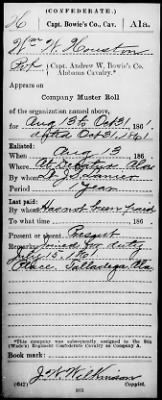 (CONFEDERATE.)
H Capt. Bowie's Co., Cav. Ala.
Wm W. Houston
Pvt, Capt. Andrew W. Bowie's Co.
Alabama Cavalry.*
Appears on
Company Muster Roll
of the organization named above,
for Aug 13 to Oct 31, 186
dated Oct 31, 1861
Enlisted:
When Aug 13, 186
Where
By whom
Period 1 Year
Last paid:
By whom Has not been paid
To what time , 186
Present or absent Present
Remarks: Joined for duty
1861
Place Talladega Ala
*This company was subsequently assigned to the 8th
(Wade's) Regiment Confederate Cavalry as Company A.
Book mark:
J W Wilkinson
(642) Copyist.